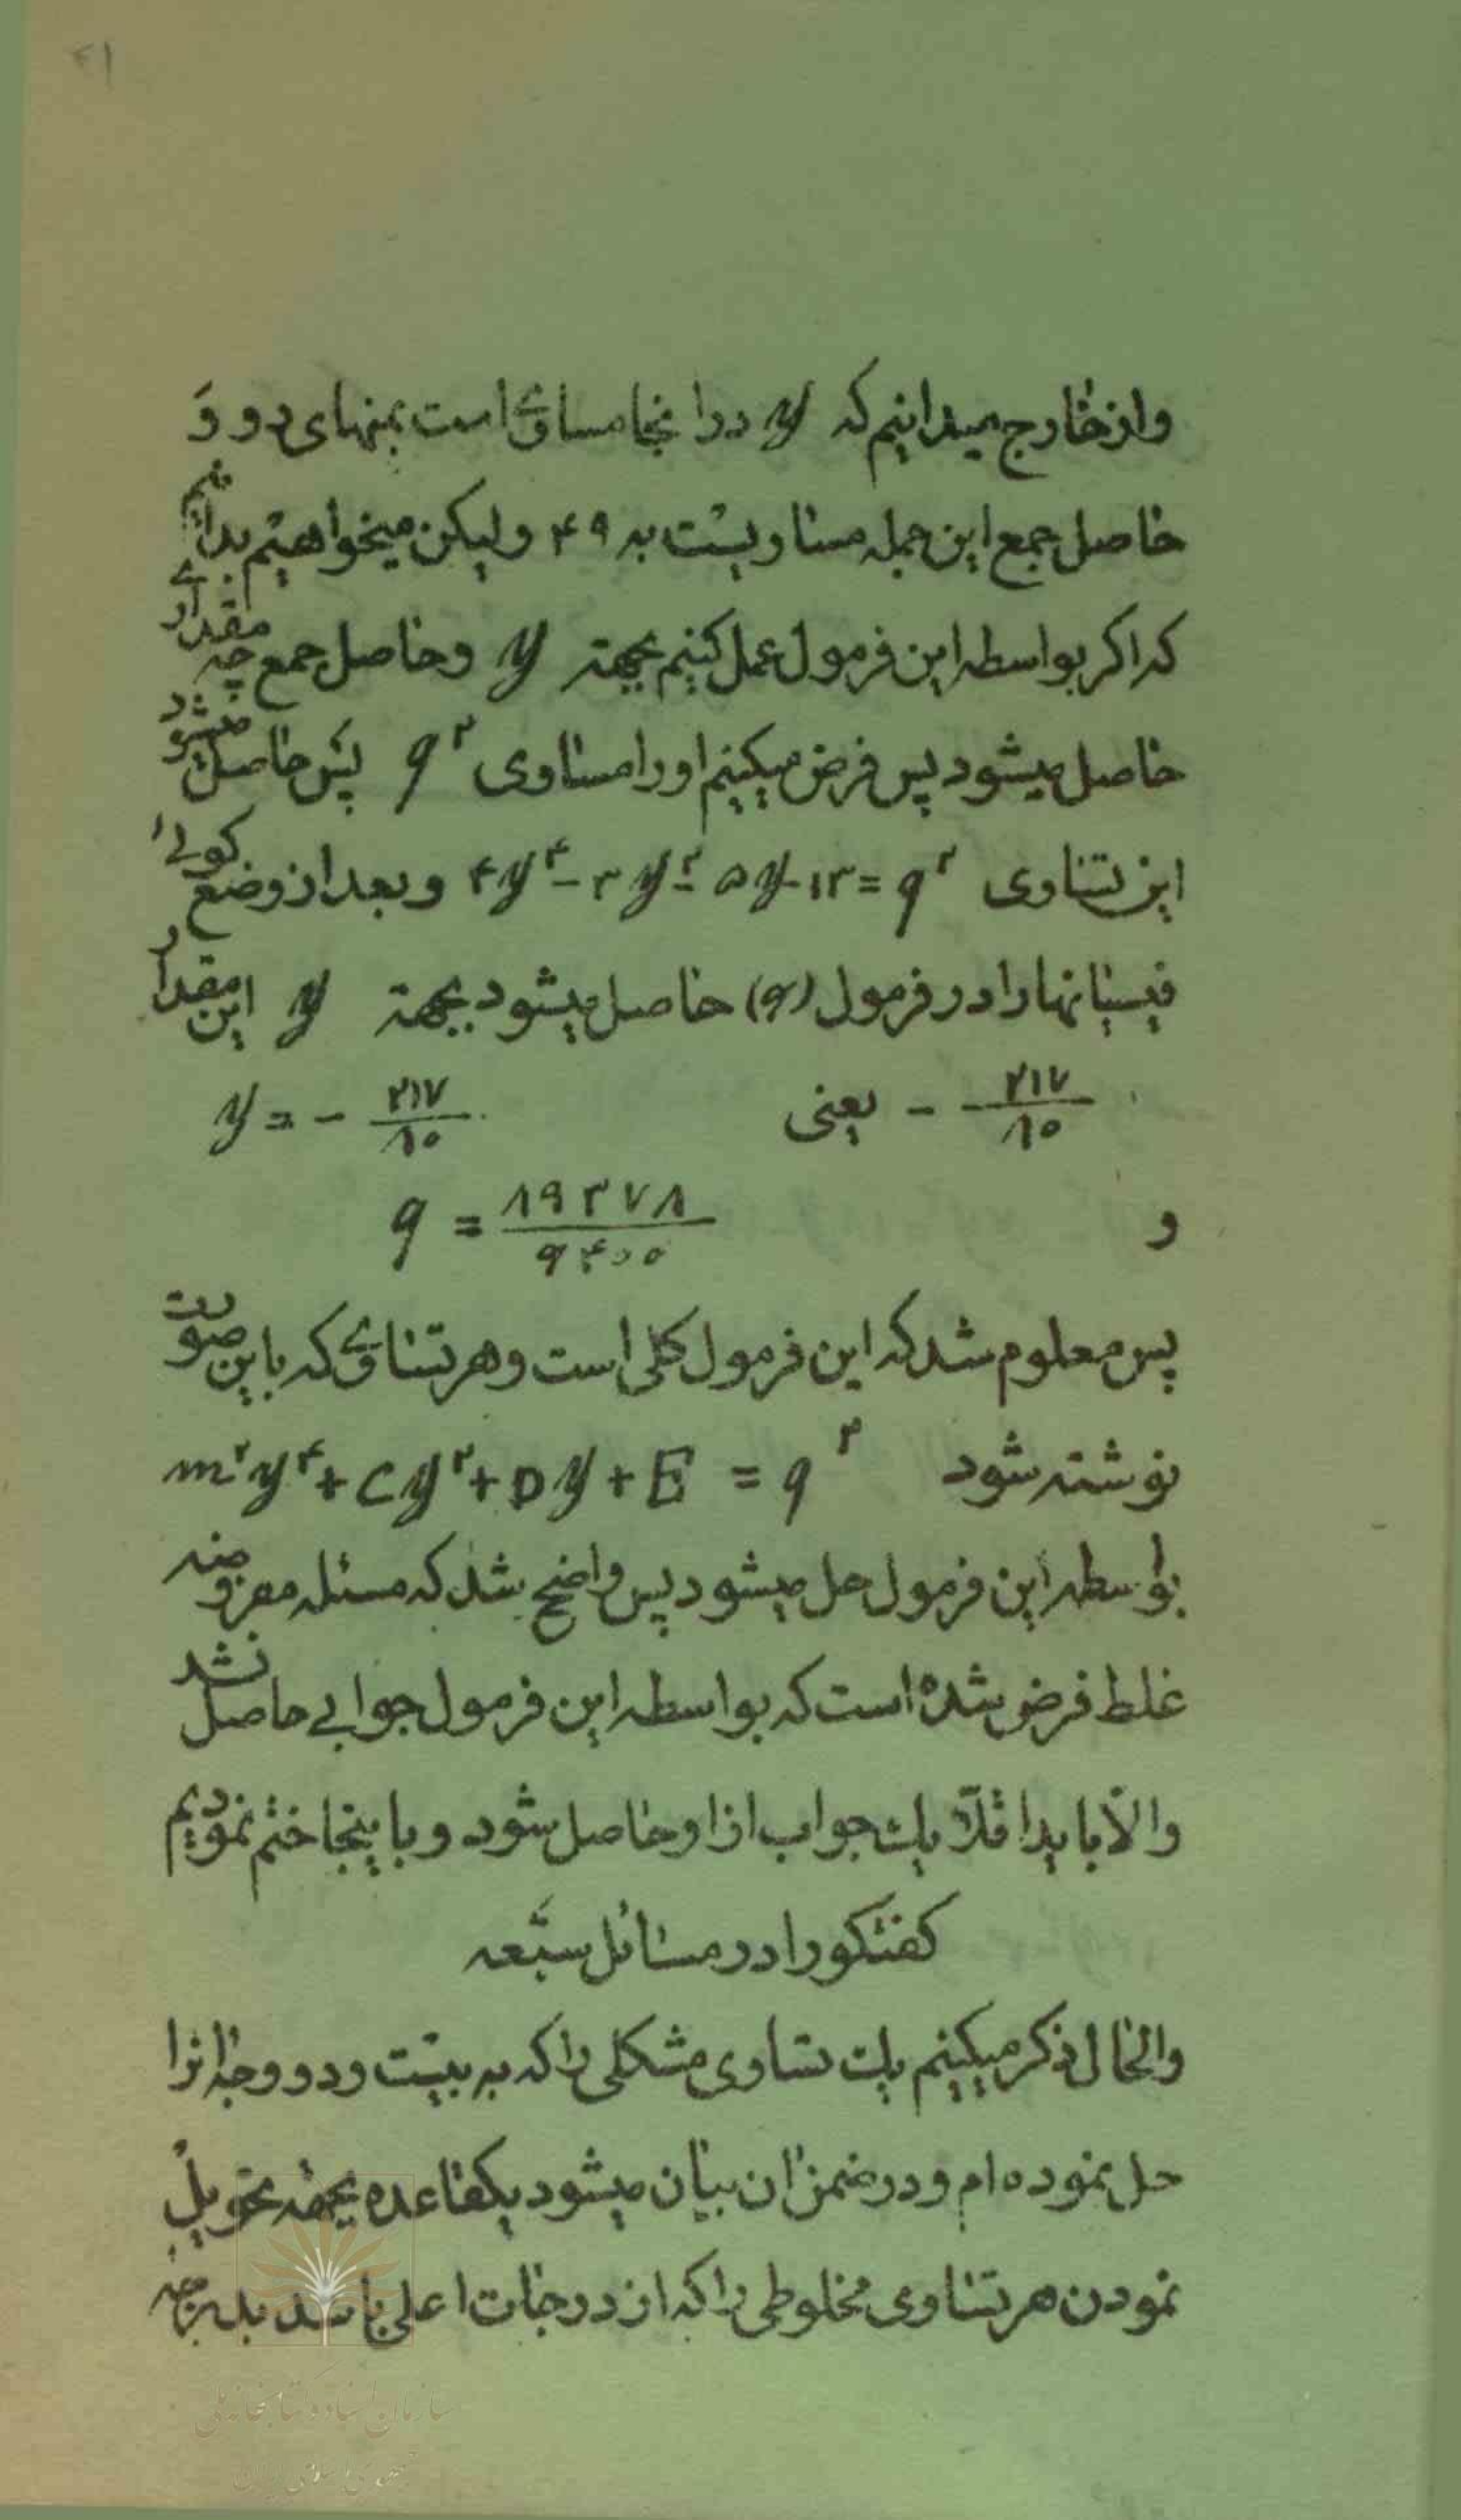 ۴۱
واز خارج میدانیم که y در اینجا مساوی است بمنهای دو و
حاصل جمع این جمله مساویست به ۴۹ ولیکن میخواهیم بدانیم
که اکر بواسطه این فرمول عمل کنیم بجهتہ y وحاصل جمع چه مقداری
حاصل میشود پس فرض میکنیم اورا مساوی q² پس حاصل میشود
این تساوی ۴y⁴-۳y²-۵y-۱۳=q² و بعد از وضع کولی
فیسیانهارا در فرمول (و) حاصل میشود بجهتہ y این مقدار
- ۲۱۷/۸۰ یعنی y = - ۲۱۷/۸۰
و q = ۸۹۳۷۸/۶۴۰۰
پس معلوم شد که این فرمول کلی است وهر تساوی که باین صورت
نوشته شود m²y⁴+Cy²+Dy+E = q²
بواسطه این فرمول حل میشود پس واضح شد که مسئله مفروضه
غلط فرض شده است که بواسطه این فرمول جوابی حاصل نشد
والّا باید اقلّا یک جواب از او حاصل شود و باینجا ختم نمودیم
کفتکورا در مسائل سبعه
والحال ذکر میکنیم یک تساوی مشکلی را که به بیست ودو وجه انرا
حل نموده ام ودر ضمن ان بیان میشود یکقاعده بجهتہ تحویل
نمودن هر تساوی مخلوطی را که از درجات اعلی باشد بدرجه
سازمان اسناد و کتابخانه ملی
جمهوری اسلامی ایران